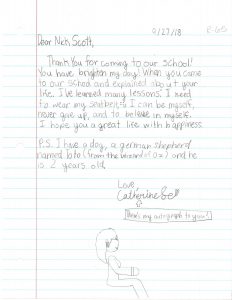 9/27/18
R-6B
Dear Nick Scott,
Thank You for coming to our school!
You have brighten my day! When you came
to our school and explained about your
life. I've learned many lessons. I need
to wear my seatbelt, I can be myself,
never give up, and to believe in myself.
I hope you a great life with happiness.
P.S. I have a dog, a german shepherd
named Toto (from the Wizard of Oz) and he
is 2 years old.
Love,
Catherine
Here's my autograph to you!